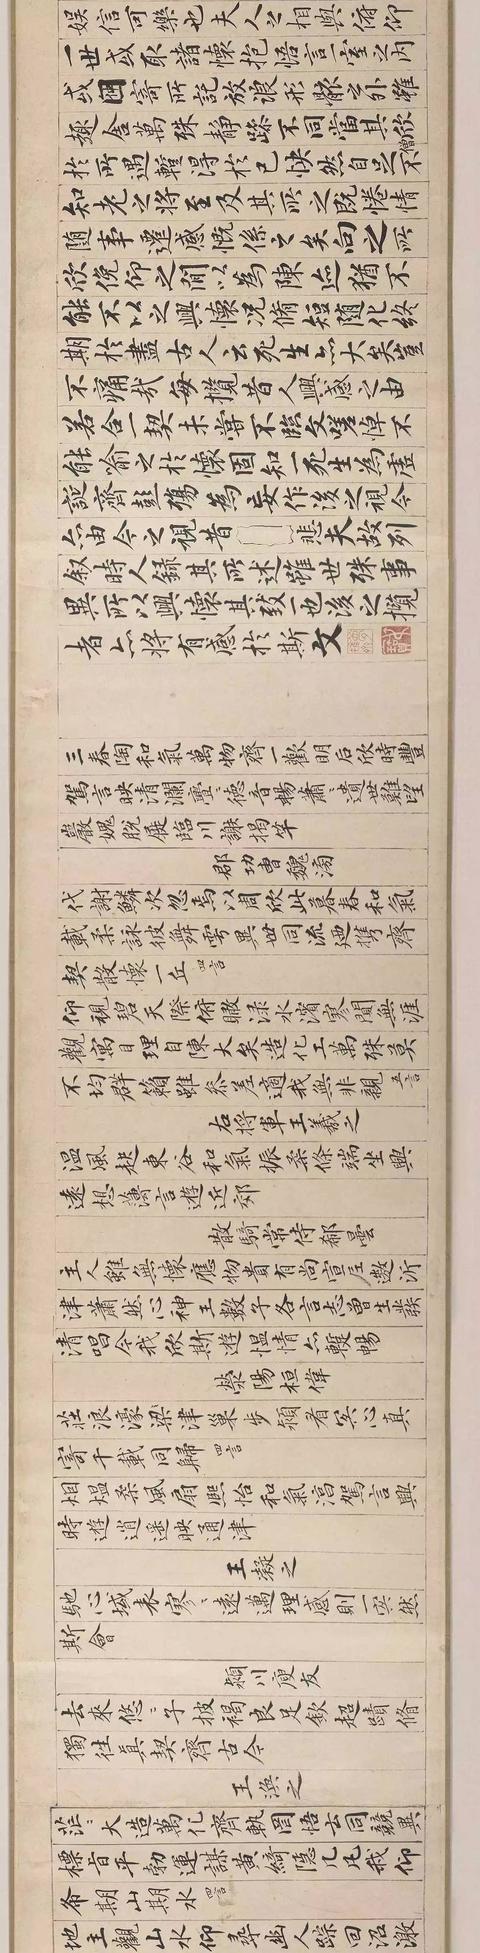 娛信可樂也夫人之相與俯仰
一世或取諸懷抱悟言一室之內
或因寄所託放浪形骸之外雖
趣舍萬殊靜躁不同當其欣
於所遇蹔得於己怏然自足不
僧
知老之將至及其所之既惓情
隨事遷感慨係之矣向之所
欣俛仰之閒以為陳迹猶不
能不以之興懷況脩短隨化終
期於盡古人云死生亦大矣豈
不痛哉每攬昔人興感之由
若合一契未嘗不臨文嗟悼不
能喻之於懷固知一死生為虛
誕齊彭殤為妄作後之視今
亦由今之視昔悲夫故列
敘時人錄其所述雖世殊事
異所以興懷其致一也後之攬
者亦將有感於斯文
三春陶和氣萬物齊一歡明后欣時豐
駕言映清瀾亹〻德音暢蕭〻遺世難望
巖愧脫屣臨川謝揭竿
郡功曹魏滂
代謝鱗次忽焉以周欣此暮春和氣
載柔詠彼舞雩異世同流迺攜齊
契散懷一丘 四言
仰視碧天際俯瞰淥水濱寥閴無涯
觀寓目理自陳大矣造化工萬殊莫
不均群籟雖參差適我無非親 五言
右將軍王羲之
溫風起東谷和氣振柔條端坐興
遠想薄言遊近郊
散騎常侍郗曇
主人雖無懷應物貴有尚宣尼遨沂
津蕭然心神王數子各言志曾生發
清唱今我欣斯遊慍情亦蹔暢
滎陽桓偉
莊浪濠梁津巢步潁湄冥心真
寄千載同歸 四言
烟煴柔風扇熙怡和氣淳駕言興
時遊逍遙映通津
王凝之
馳心域表寥〻遠邁理感則一冥然
斯會
潁川庾友
去來悠〻子披褐良足欽超蹟脩
獨往真契齊古今
王渙之
茫〻大造萬化齊軌罔悟玄同競異
標旨平勃運謀黃綺隱几凡我仰
希期山期水 四言
地主觀山水仰尋幽人蹤回沼激